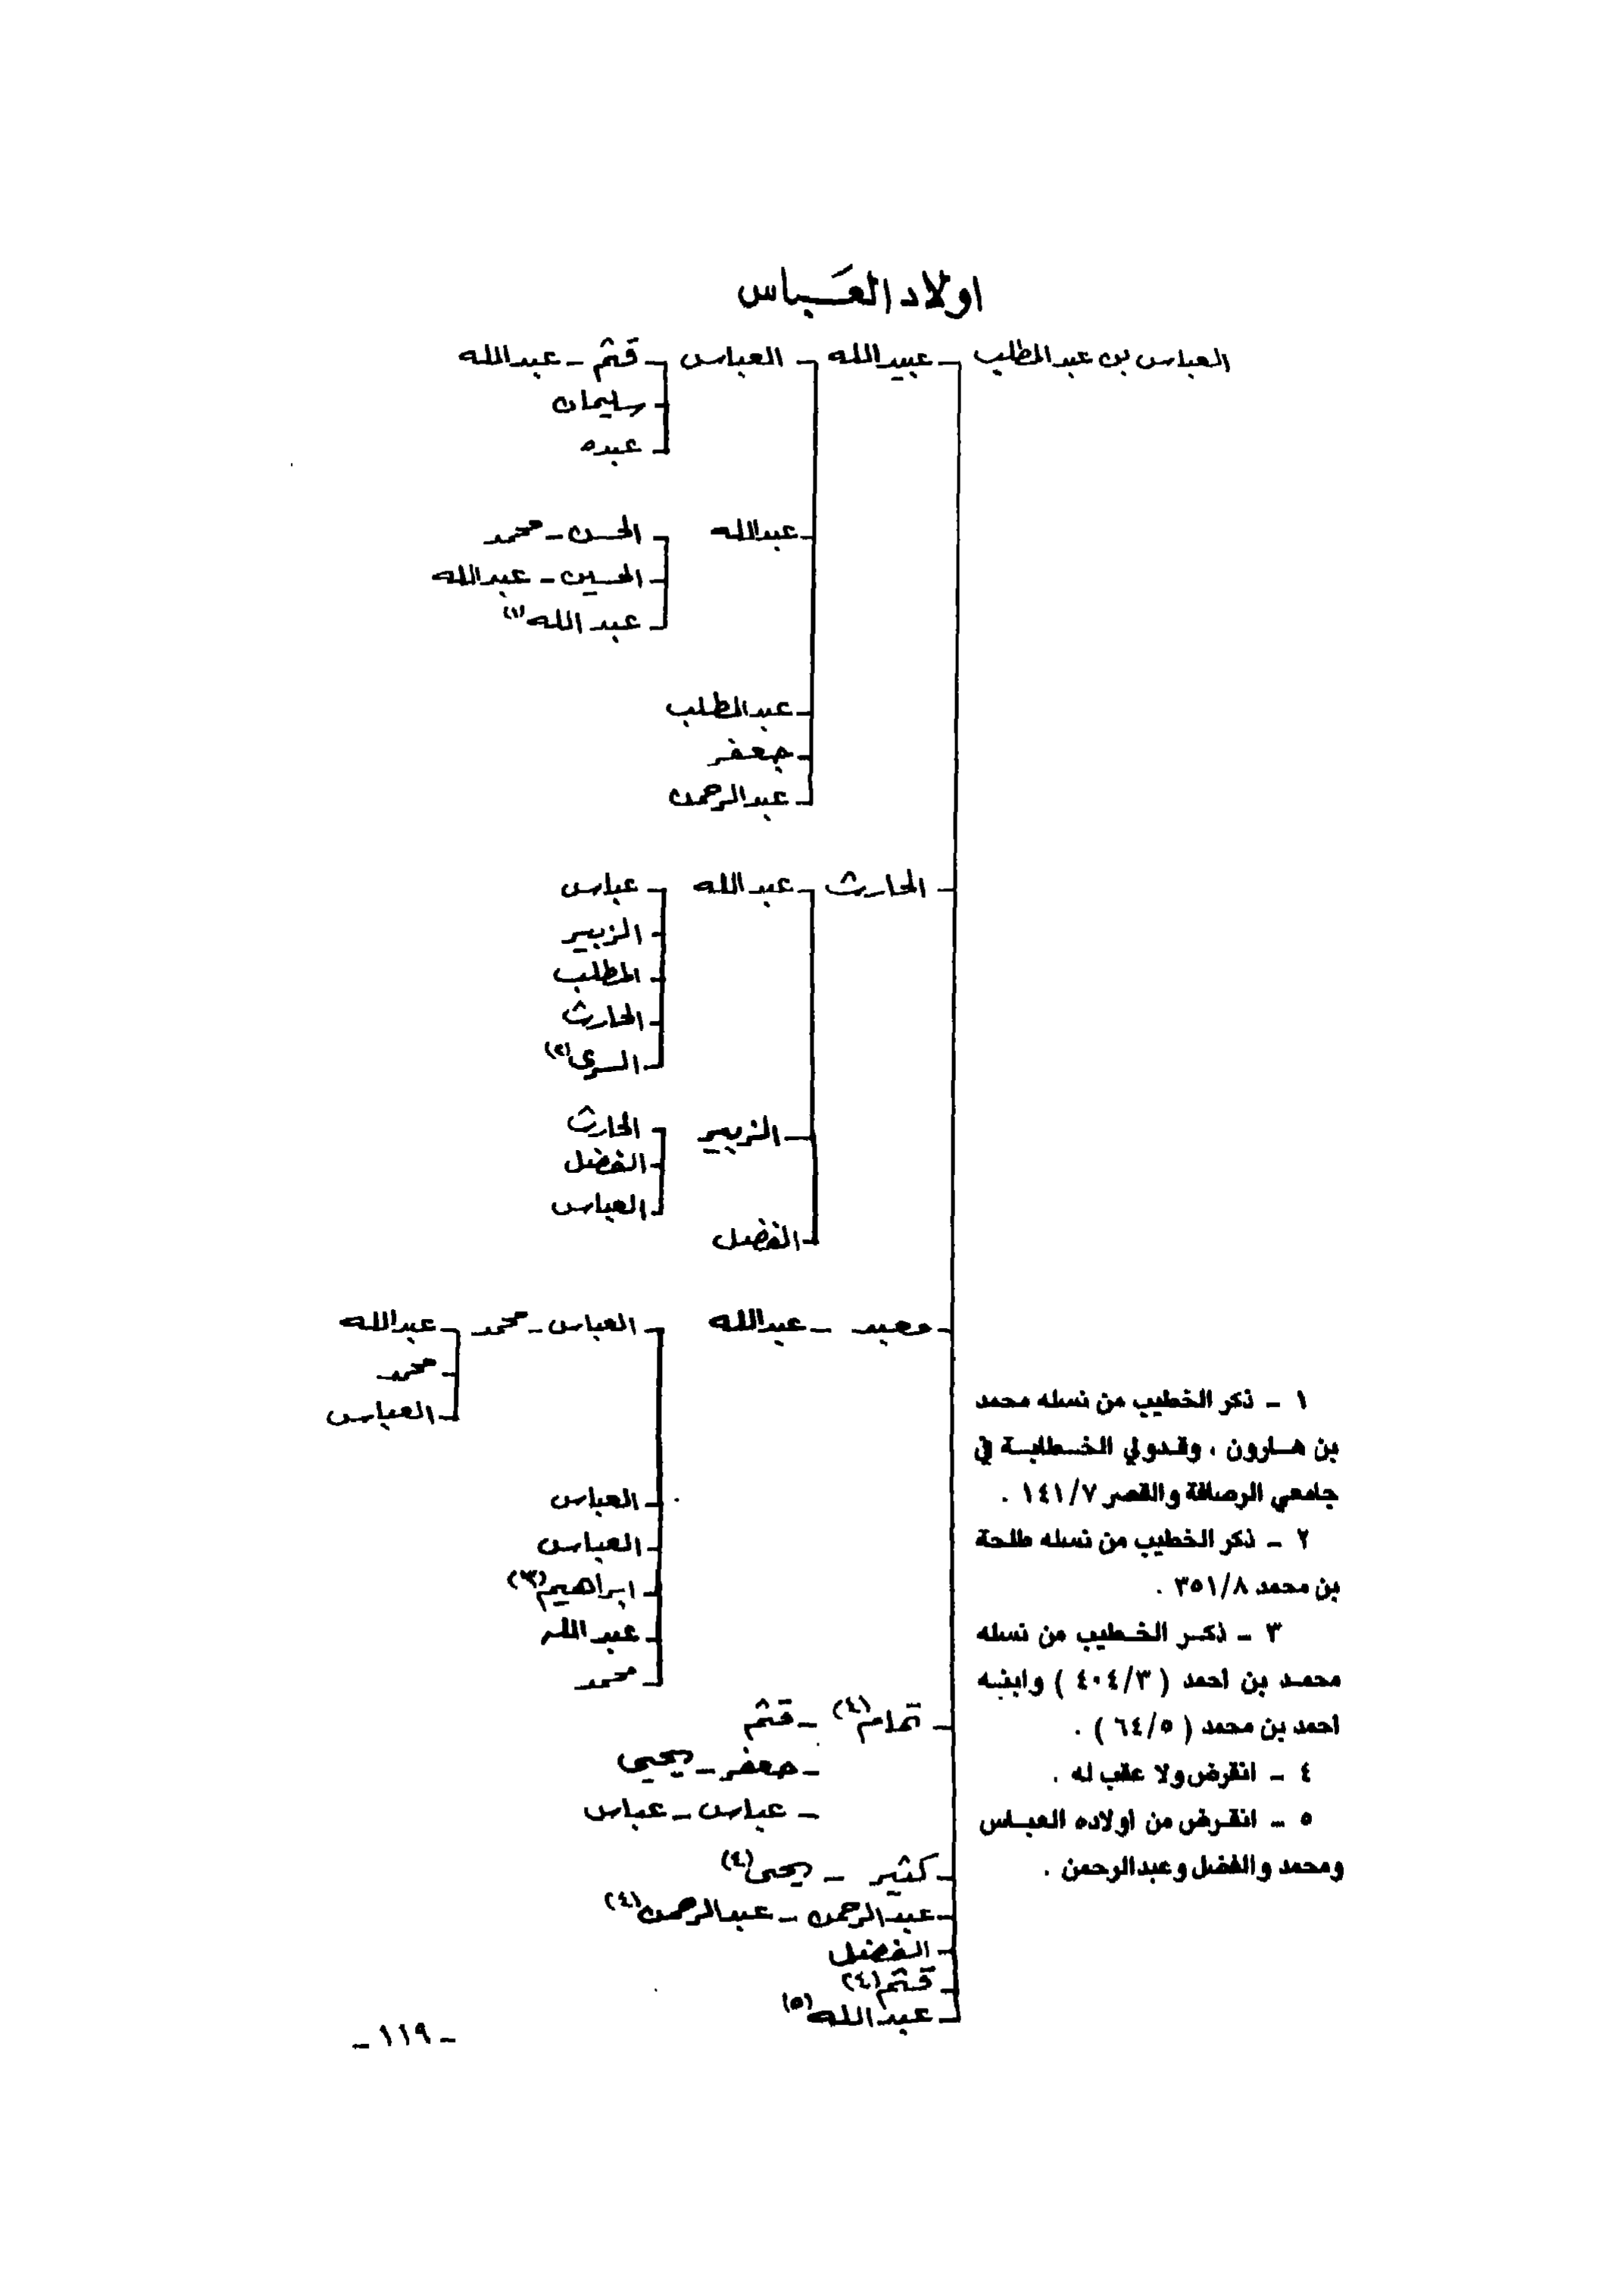 اولاد العَباس
العباس بن عبد المطلب – عبيدالله – العباس – قثم – عبدالله
سليمان
عبده
عبدالله – الحسن – محمد
الحسين – عبدالله
عبد الله (١)
عبدالمطلب
جعفر
عبدالرحمن
الحارث – عبد الله – عباس
الزبير
المطلب
الحارث
السرى (٢)
الزبير – الحارث
الفضل
العباس
الفضل
معبد – عبدالله – العباس – محمد – عبدالله
محمد
العباس
العباس
العباس
ابراهيم (٣)
عبد الله
محمد
تمام (٤) – قثم
– جعفر – يحيى
– عباس – عباس
كثير – يحيى (٤)
عبدالرحمن – عبدالرحمن (٤)
الفضل
قثم (٤)
عبدالله (٥)
١ – ذكر الخطيب من نسله محمد
بن هارون ، وقدولي الخطابة في
جامعي الرصافة والقصر ١٤١/٧ .
٢ – ذكر الخطيب من نسله طلحة
بن محمد ٣٥١/٨ .
٣ – ذكر الخطيب من نسله
محمد بن أحمد ( ٤٠٤/٣ ) وابنه
أحمد بن محمد ( ٦٤/٥ ) .
٤ – انقرض ولا عقب له .
٥ – انقرض من اولاده العباس
ومحمد والفضل وعبدالرحمن .
– ١١٩ –